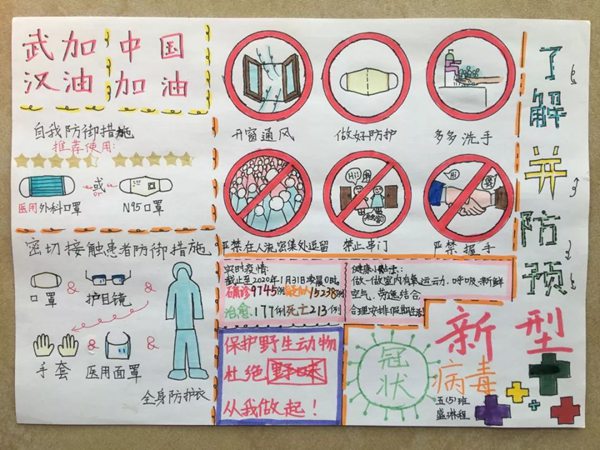 武汉加油
中国加油
自我防御措施
推荐使用：
医用外科口罩
或
N95口罩
密切接触患者防御措施
口罩
&
护目镜
&
手套
&
医用面罩
&
全身防护衣
开窗通风
做好防护
多多洗手
Hi!
严禁在人流密集处逗留
禁止串门
严禁握手
实时疫情：
截止至2020年1月31日零晨0时
确诊9745例疑似15238例
治愈：177例死亡213例
健康小贴士：
做一做室内有氧运动、呼吸新鲜
空气、劳逸结合
合理安排假期生活
保护野生动物
杜绝野味
从我做起！
了解并预防
新型
冠状
病毒
五(5)班
盛琳程